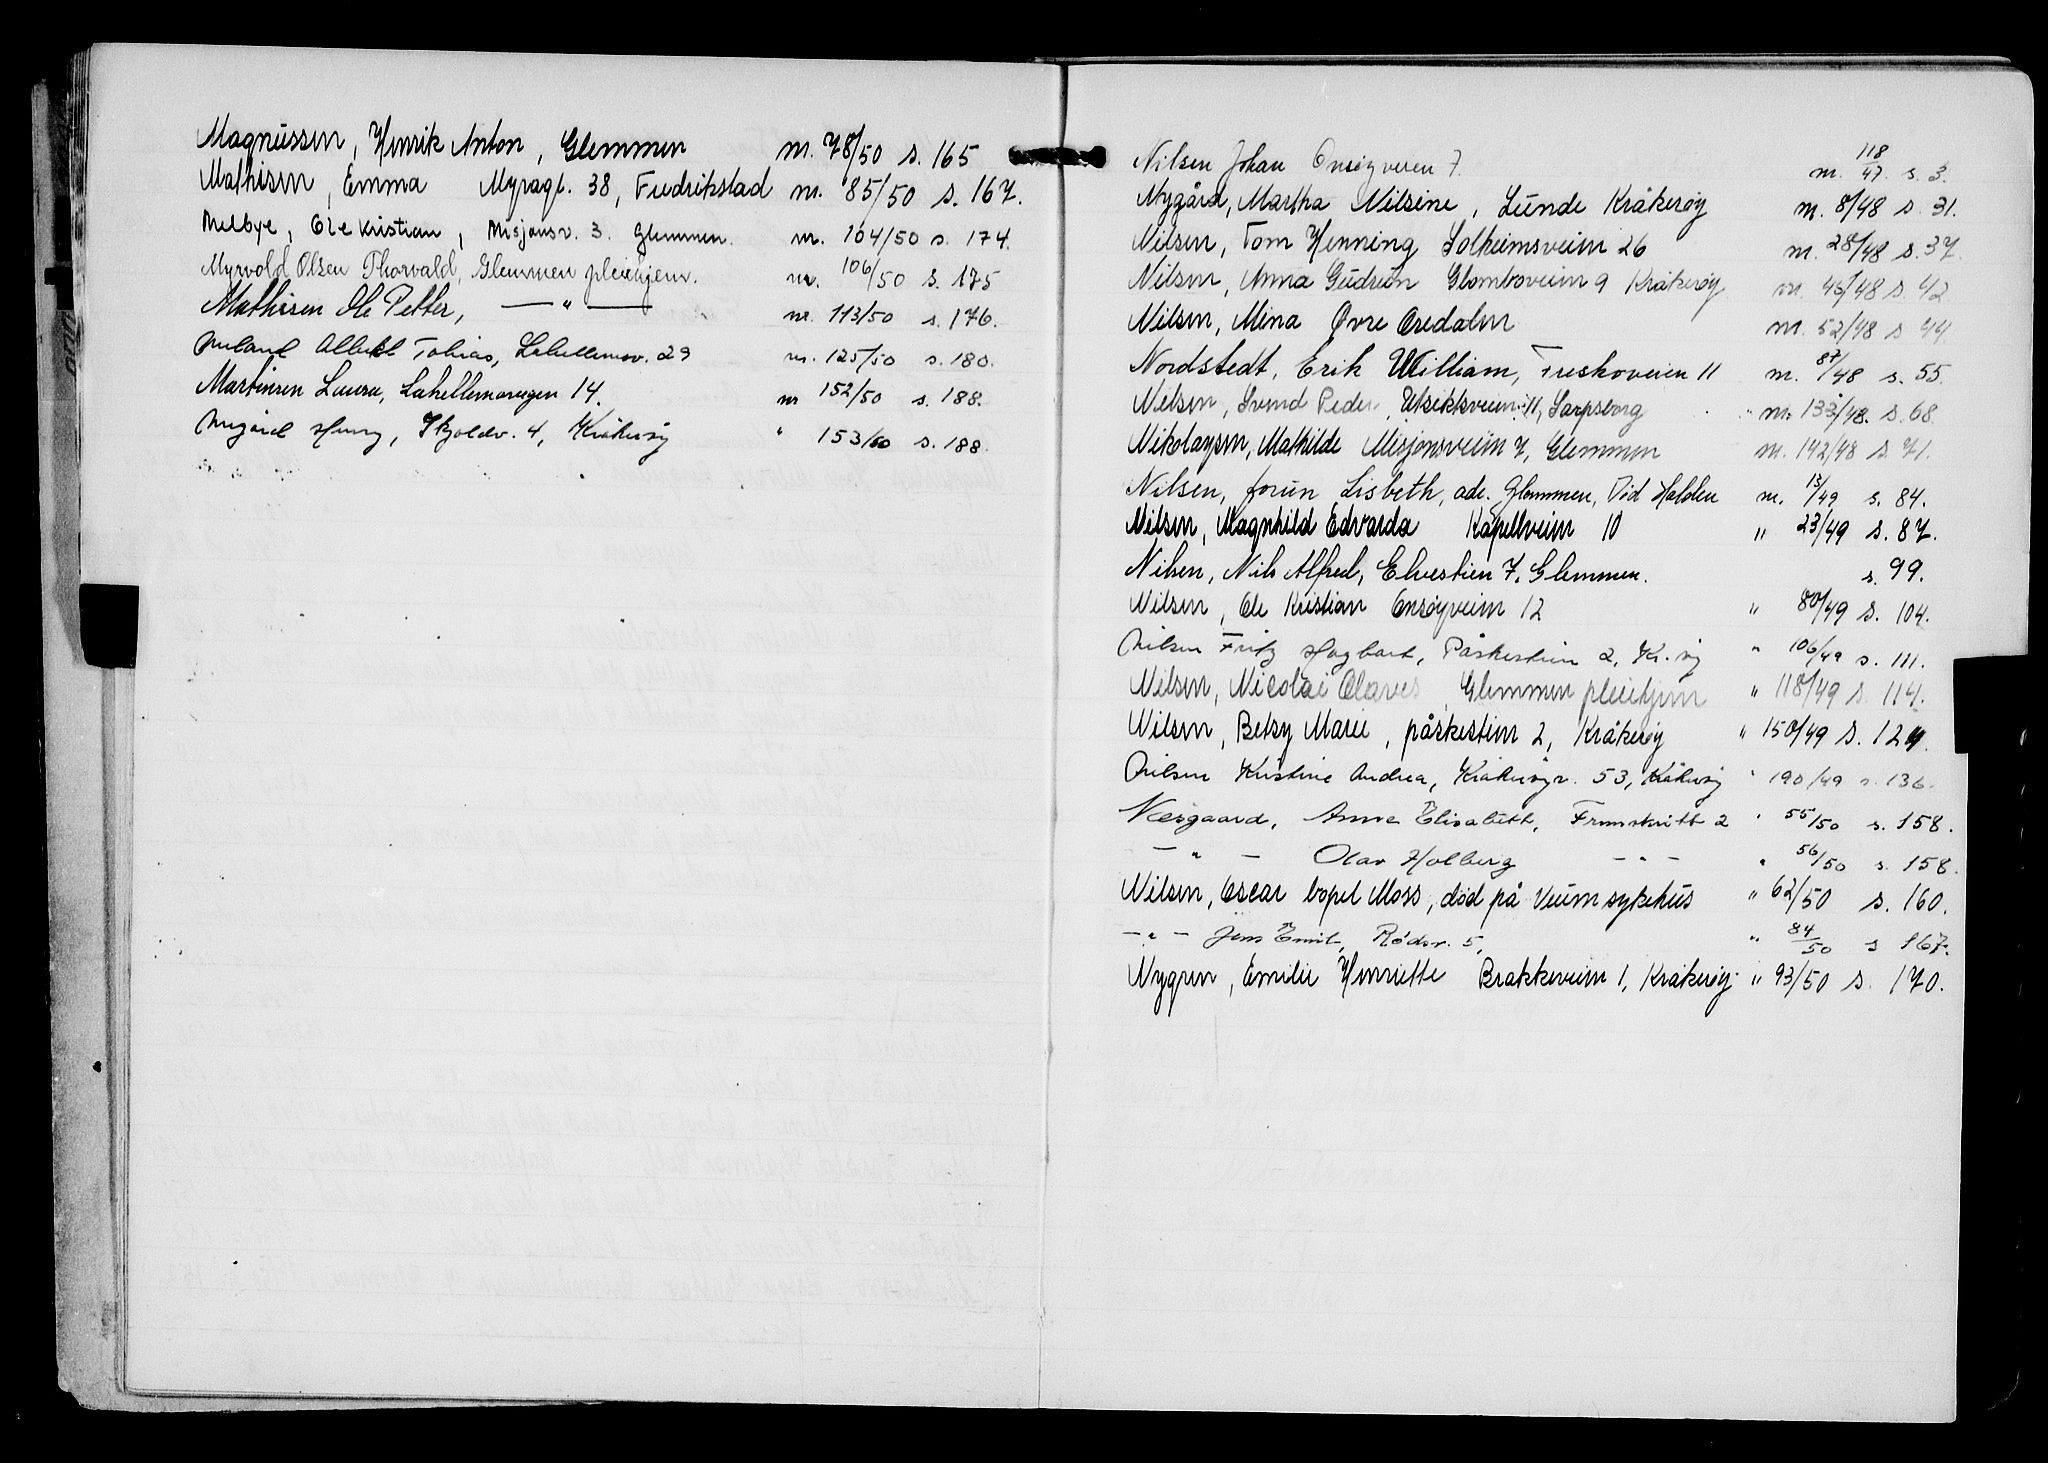 Magnussen, Henrik Anton, Glemmen nr. 78/50 s. 165
Mathisen, Emma Myragt. 38, Fredrikstad nr. 85/50 s. 167.
Melbye, Ole Kristian, Misjonsv. 3. Glemmen. nr. 104/50 s. 174.
Myrvold Olsen Thorvald, Glemmen pleiehjem. nr. 106/50 s. 175
Mathisen Ole Petter, — " — nr. 113/50 s. 176.
Albert Tobias, Lahellemov. 29 nr. 125/50 s. 180.
Martinsen Laura, Lahellemoveien 14. nr 152/50 s. 188.
Skjoldv. 4, Kråkerøy " 153/50 s. 188.
Nilsen Johan Onsøyveien 7. nr. 118/47. s. 3.
Nygård, Martha Nilsine, Lunde Kråkerøy nr. 8/48 s. 31.
Nilsen, Tom Henning Solheimsveien 26 nr. 28/48 s. 37.
Nilsen, Anna Gudrun Glomboveien 9 Kråkerøy nr. 45/48 s. 42
Nilsen, Mina Øvre Oredalen nr. 52/48 s 44.
Nordstedt, Erik William, Freskoveien 11 nr. 87/48 s. 55.
Nilsen, Svend Peder, Utsiktsveien 11, Sarpsborg " nr. 133/48. s. 68.
Nikolaysen, Mathilde Misjonsveien 7, Glemmen nr. 142/48 s. 71.
Nilsen, Jorun Lisbeth, adr. Glemmen, Død Halden nr. 13/49 s. 84.
Nilsen, Magnhild Edvarda Kapellveien 10 " 23/49 s. 87.
Nilsen, Nils Alfred, Elvestien 7, Glemmen. s. 99.
Nilsen, Ole Kristian Onsøyveien 12 " 80/49 s. 104.
Nilsen Fritz Hagbart, Påskestien 2, Kr. øy " 106/49 s. 111.
Nilsen, Nicolai Olaves, Glemmen pleiehjem " 118/49 s. 114.
Nilsen, Betsy Marie, påskestien 2, Kråkerøy " 150/49 s. 124.
Nilsen Kristine Andrea, Kråkerøyv. 53, Kråkerøy " 190/49 s. 136.
Næsgaard, Anna Elisabeth, Fremskritt 2 " 55/50 s. 158.
— " — Olav Holberg — " — " 56/50 s. 158.
Nilsen, Oscar bopel Moss, død på Veum sykehus " 62/50 s. 160.
— " — Jens Emil, Rødsv. 5, " 84/50 s 167.
Nygren, Emilie Henriette Brakkeveien 1, Kråkerøy " 93/50 s. 170.